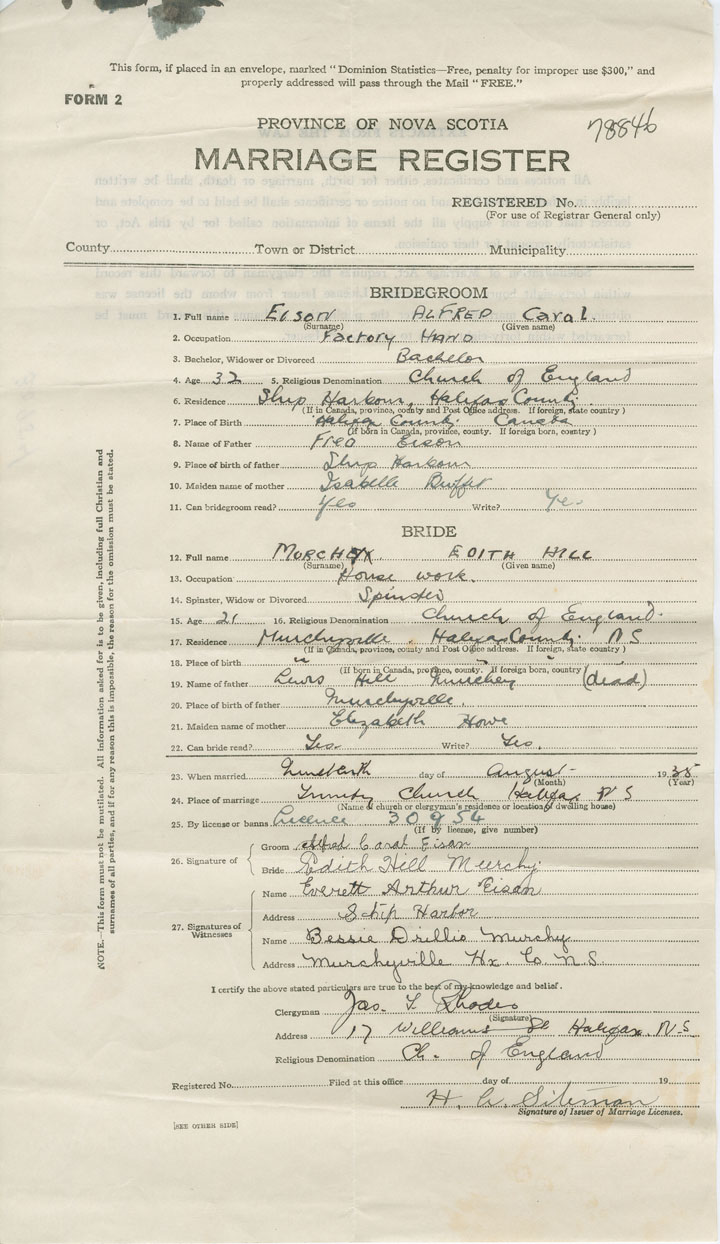 This form, if placed in an envelope, marked "Dominion Statistics—Free, penalty for improper use $300," and
properly addressed will pass through the Mail "FREE."
FORM 2
PROVINCE OF NOVA SCOTIA
78846
MARRIAGE REGISTER
REGISTERED No.
(For use of Registrar General only)
County Town or District Municipality
BRIDEGROOM
1. Full name EISON ALFRED Caral
(Surname) (Given name)
2. Occupation Factory HAND
3. Bachelor, Widower or Divorced Bachelor
4. Age 32 5. Religious Denomination Church of England
6. Residence Ship Harbour, Halifax County
(If in Canada, province, county and Post Office address. If foreign, state country)
7. Place of Birth Halifax County Canada
(If born in Canada, province, county. If foreign born, country)
8. Name of Father Fred Eison
9. Place of birth of father Ship Harbour
10. Maiden name of mother Isabelle
11. Can bridegroom read? Yes Write? Yes
BRIDE
12. Full name EDITH HILL
(Surname) (Given name)
13. Occupation House work.
14. Spinster, Widow or Divorced Spinster
15. Age 21 16. Religious Denomination Church of England.
17. Residence Murchyville Halifax County N S
(If in Canada, province, county and Post Office address. If foreign, state country)
18. Place of birth " " "
(If born in Canada, province, county. If foreign born, country)
19. Name of father Lewis Hill Murchey (dead)
20. Place of birth of father Murchyville.
21. Maiden name of mother Elizabeth Howe
22. Can bride read? Yes. Write? Yes.
23. When married Nineteenth day of August 1935
(Month) (Year)
24. Place of marriage Trinity Church Halifax N S
(Name of church or clergyman's residence or location of dwelling house)
25. By license or banns Licence 30954
(If by license, give number)
26. Signature of
Groom Alfred Caral Eisan
Bride Edith Hill Murchy
27. Signatures of Witnesses
Name Everett Arthur Eisan
Address Ship Harbor
Name Bessie Drillio Murchy
Address Murchyville Hx. Co. N.S.
I certify the above stated particulars are true to the best of my knowledge and belief.
Clergyman Jas. L. Rhodes
(Signature)
Address 17 Williams St Halifax. N.S
Religious Denomination Ch. of England
Registered No. Filed at this office day of 19
H. Siteman
Signature of Issuer of Marriage Licenses.
[SEE OTHER SIDE]
NOTE.—This form must not be mutilated. All information asked for is to be given, including full Christian and
surnames of all parties, and if for any reason this is impossible, the reason for the omission must be stated.